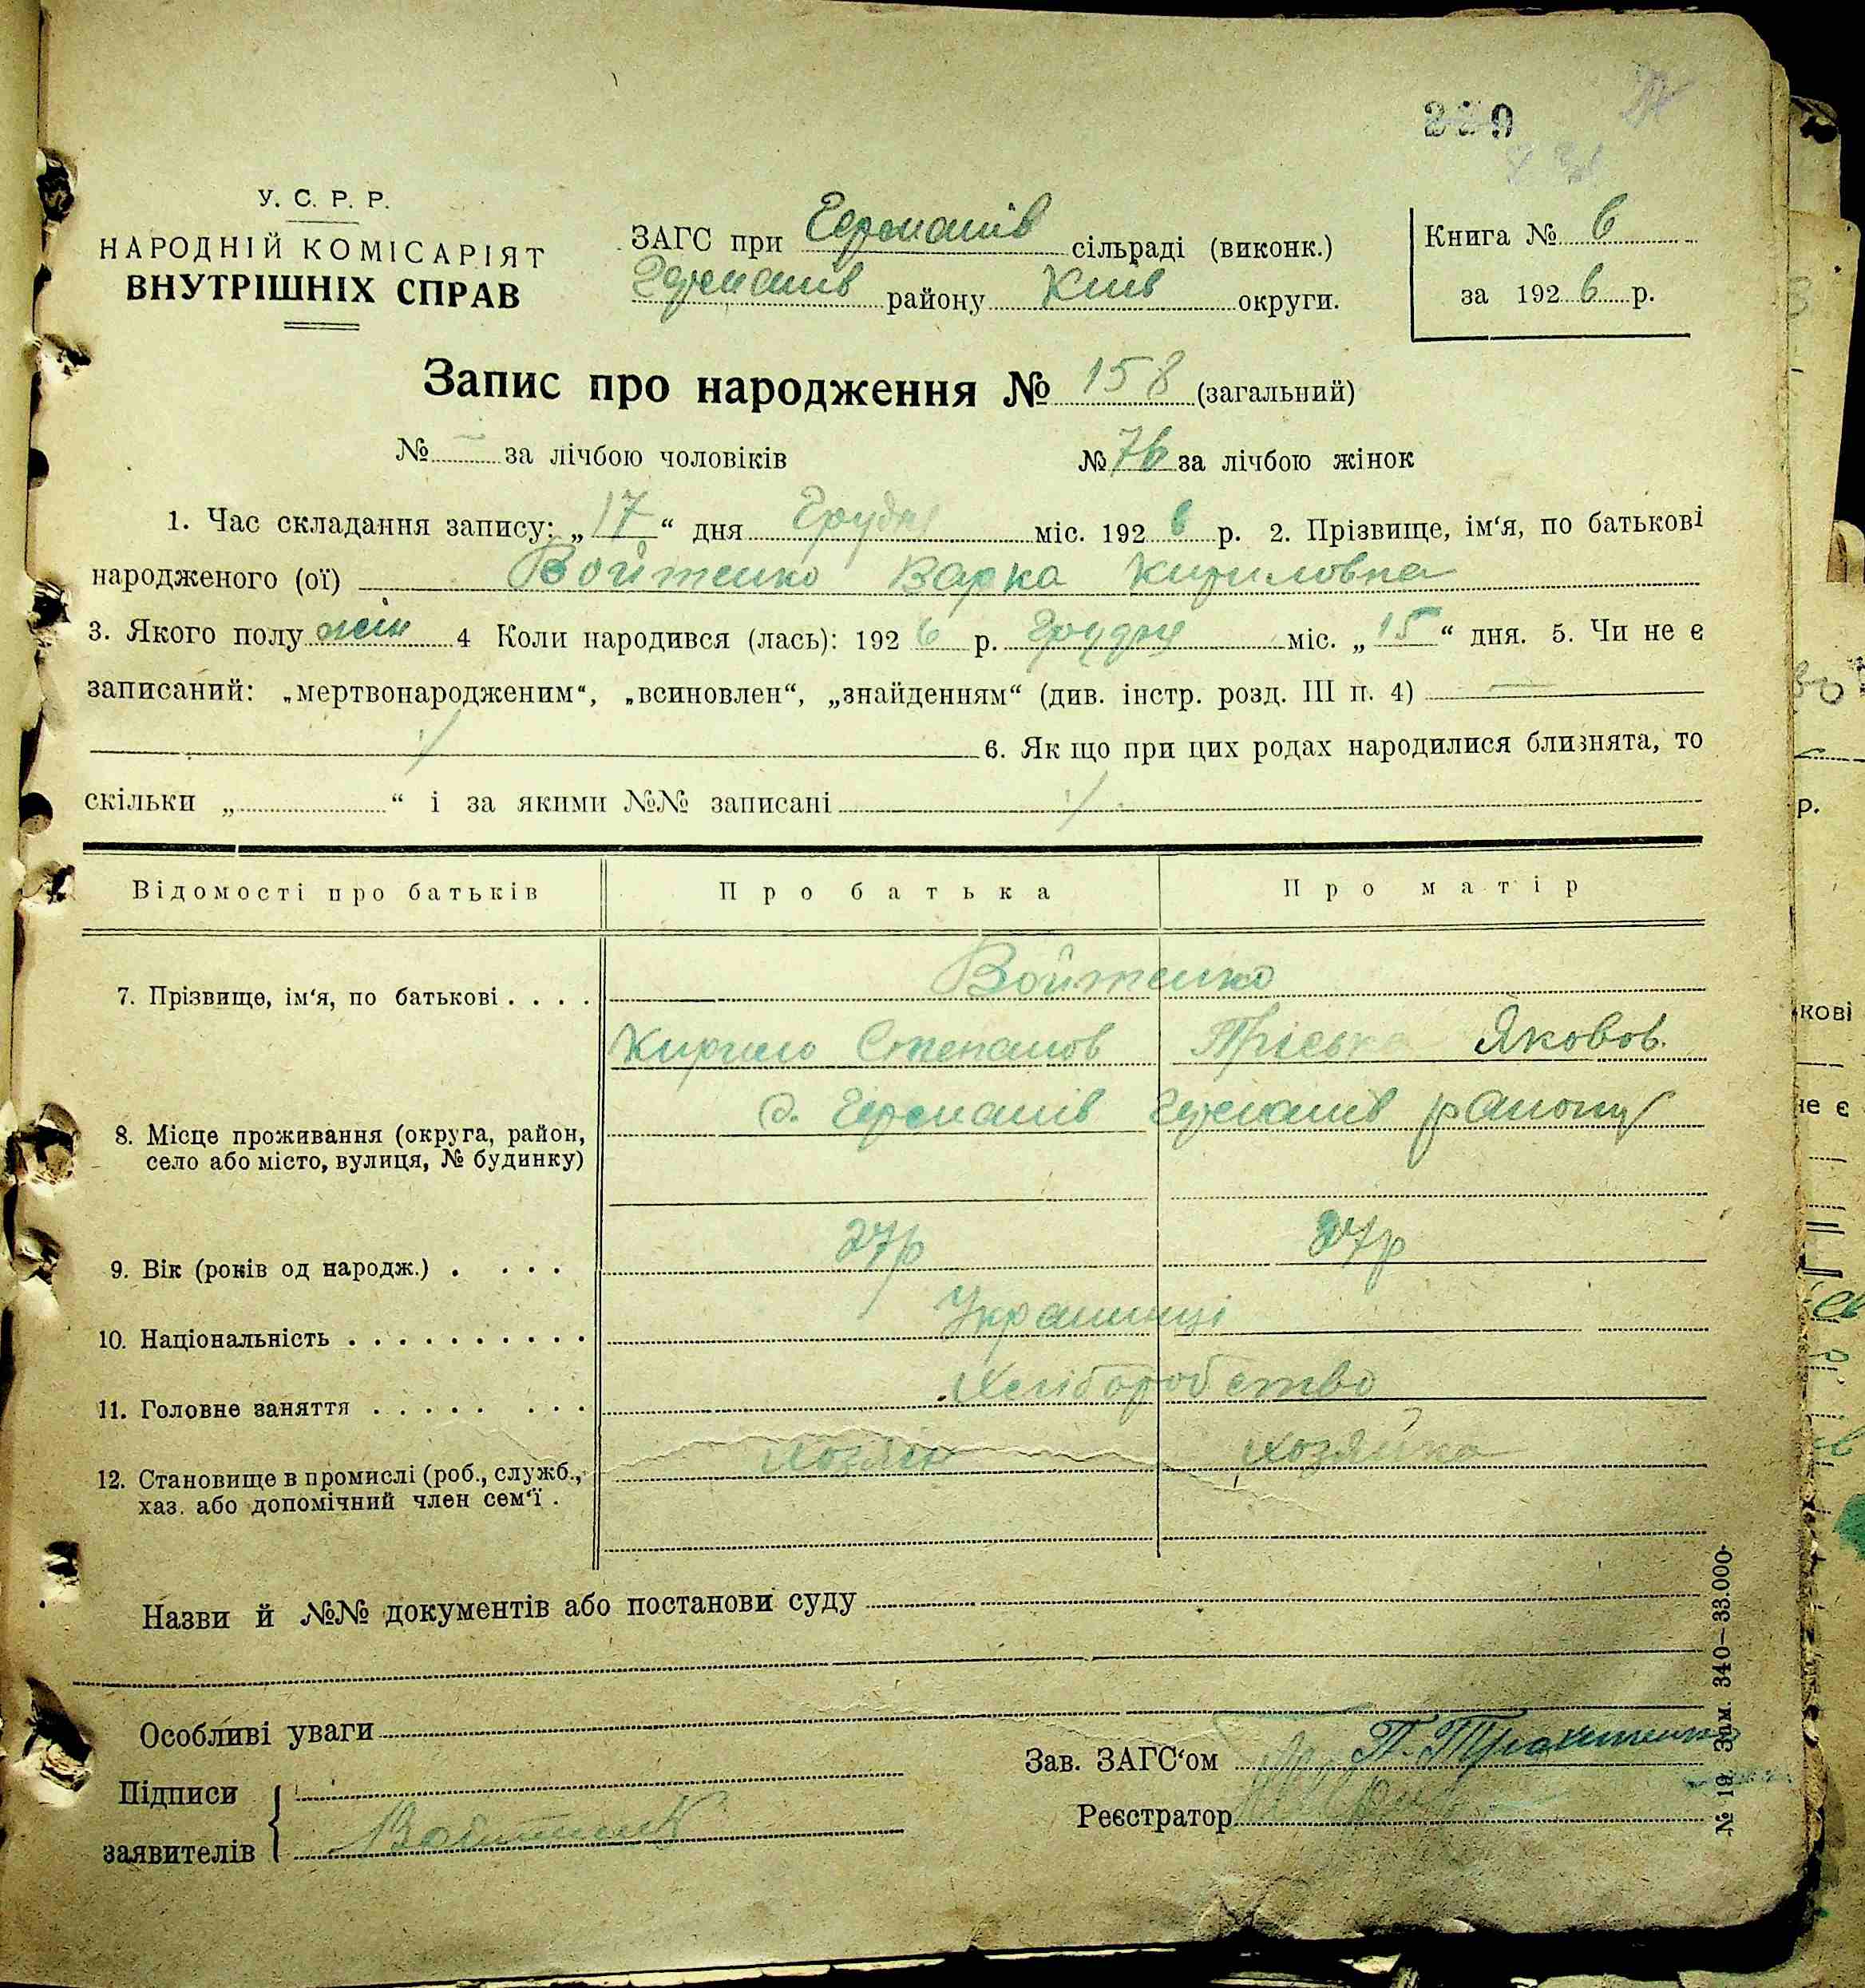 У. С. Р. Р.
НАРОДНІЙ КОМІСАРІЯТ
ВНУТРІШНІХ СПРАВ
ЗАГС при Германів сільраді (виконк.)
Германів району Київ округи.
Книга № 6
за 1926 р.
Запис про народження № 158 (загальний)
№ — за лічбою чоловіків № 76 за лічбою жінок
1. Час складання запису: „17“ дня Грудня міс. 1926 р. 2. Прізвище, ім‘я, по батькові
народженого (ої) Войтенко Варка Кириловна
3. Якого полу жін 4 Коли народився (лась): 1926 р. Грудня міс. „15“ дня. 5. Чи не є
записаний: „мертвонародженим“, „всиновлен“, „знайденням“ (див. інстр. розд. III п. 4) —
6. Як що при цих родах народилися близнята, то
скільки „ “ і за якими №№ записані
Відомості про батьків Про батька Про матір
7. Прізвище, ім‘я, по батькові . . . . Войтенко
Кирило Степанов Яковов.
8. Місце проживання (округа, район,
село або місто, вулиця, № будинку)
с. Германів Германів району
9. Вік (років од народж.) . . . . 27р 27р
10. Національність . . . . . . . . . . Українці
11. Головне заняття . . . . . . . . Хліборобство
12. Становище в промислі (роб., служб.,
хаз. або допомічний член сем‘ї .
Хозяїн Хозяйка
Назви й №№ документів або постанови суду
Особливі уваги
Підписи
заявителів
Войтенк
Зав. ЗАГС‘ом
Реєстратор
№ 19 Зам. 340—33.000